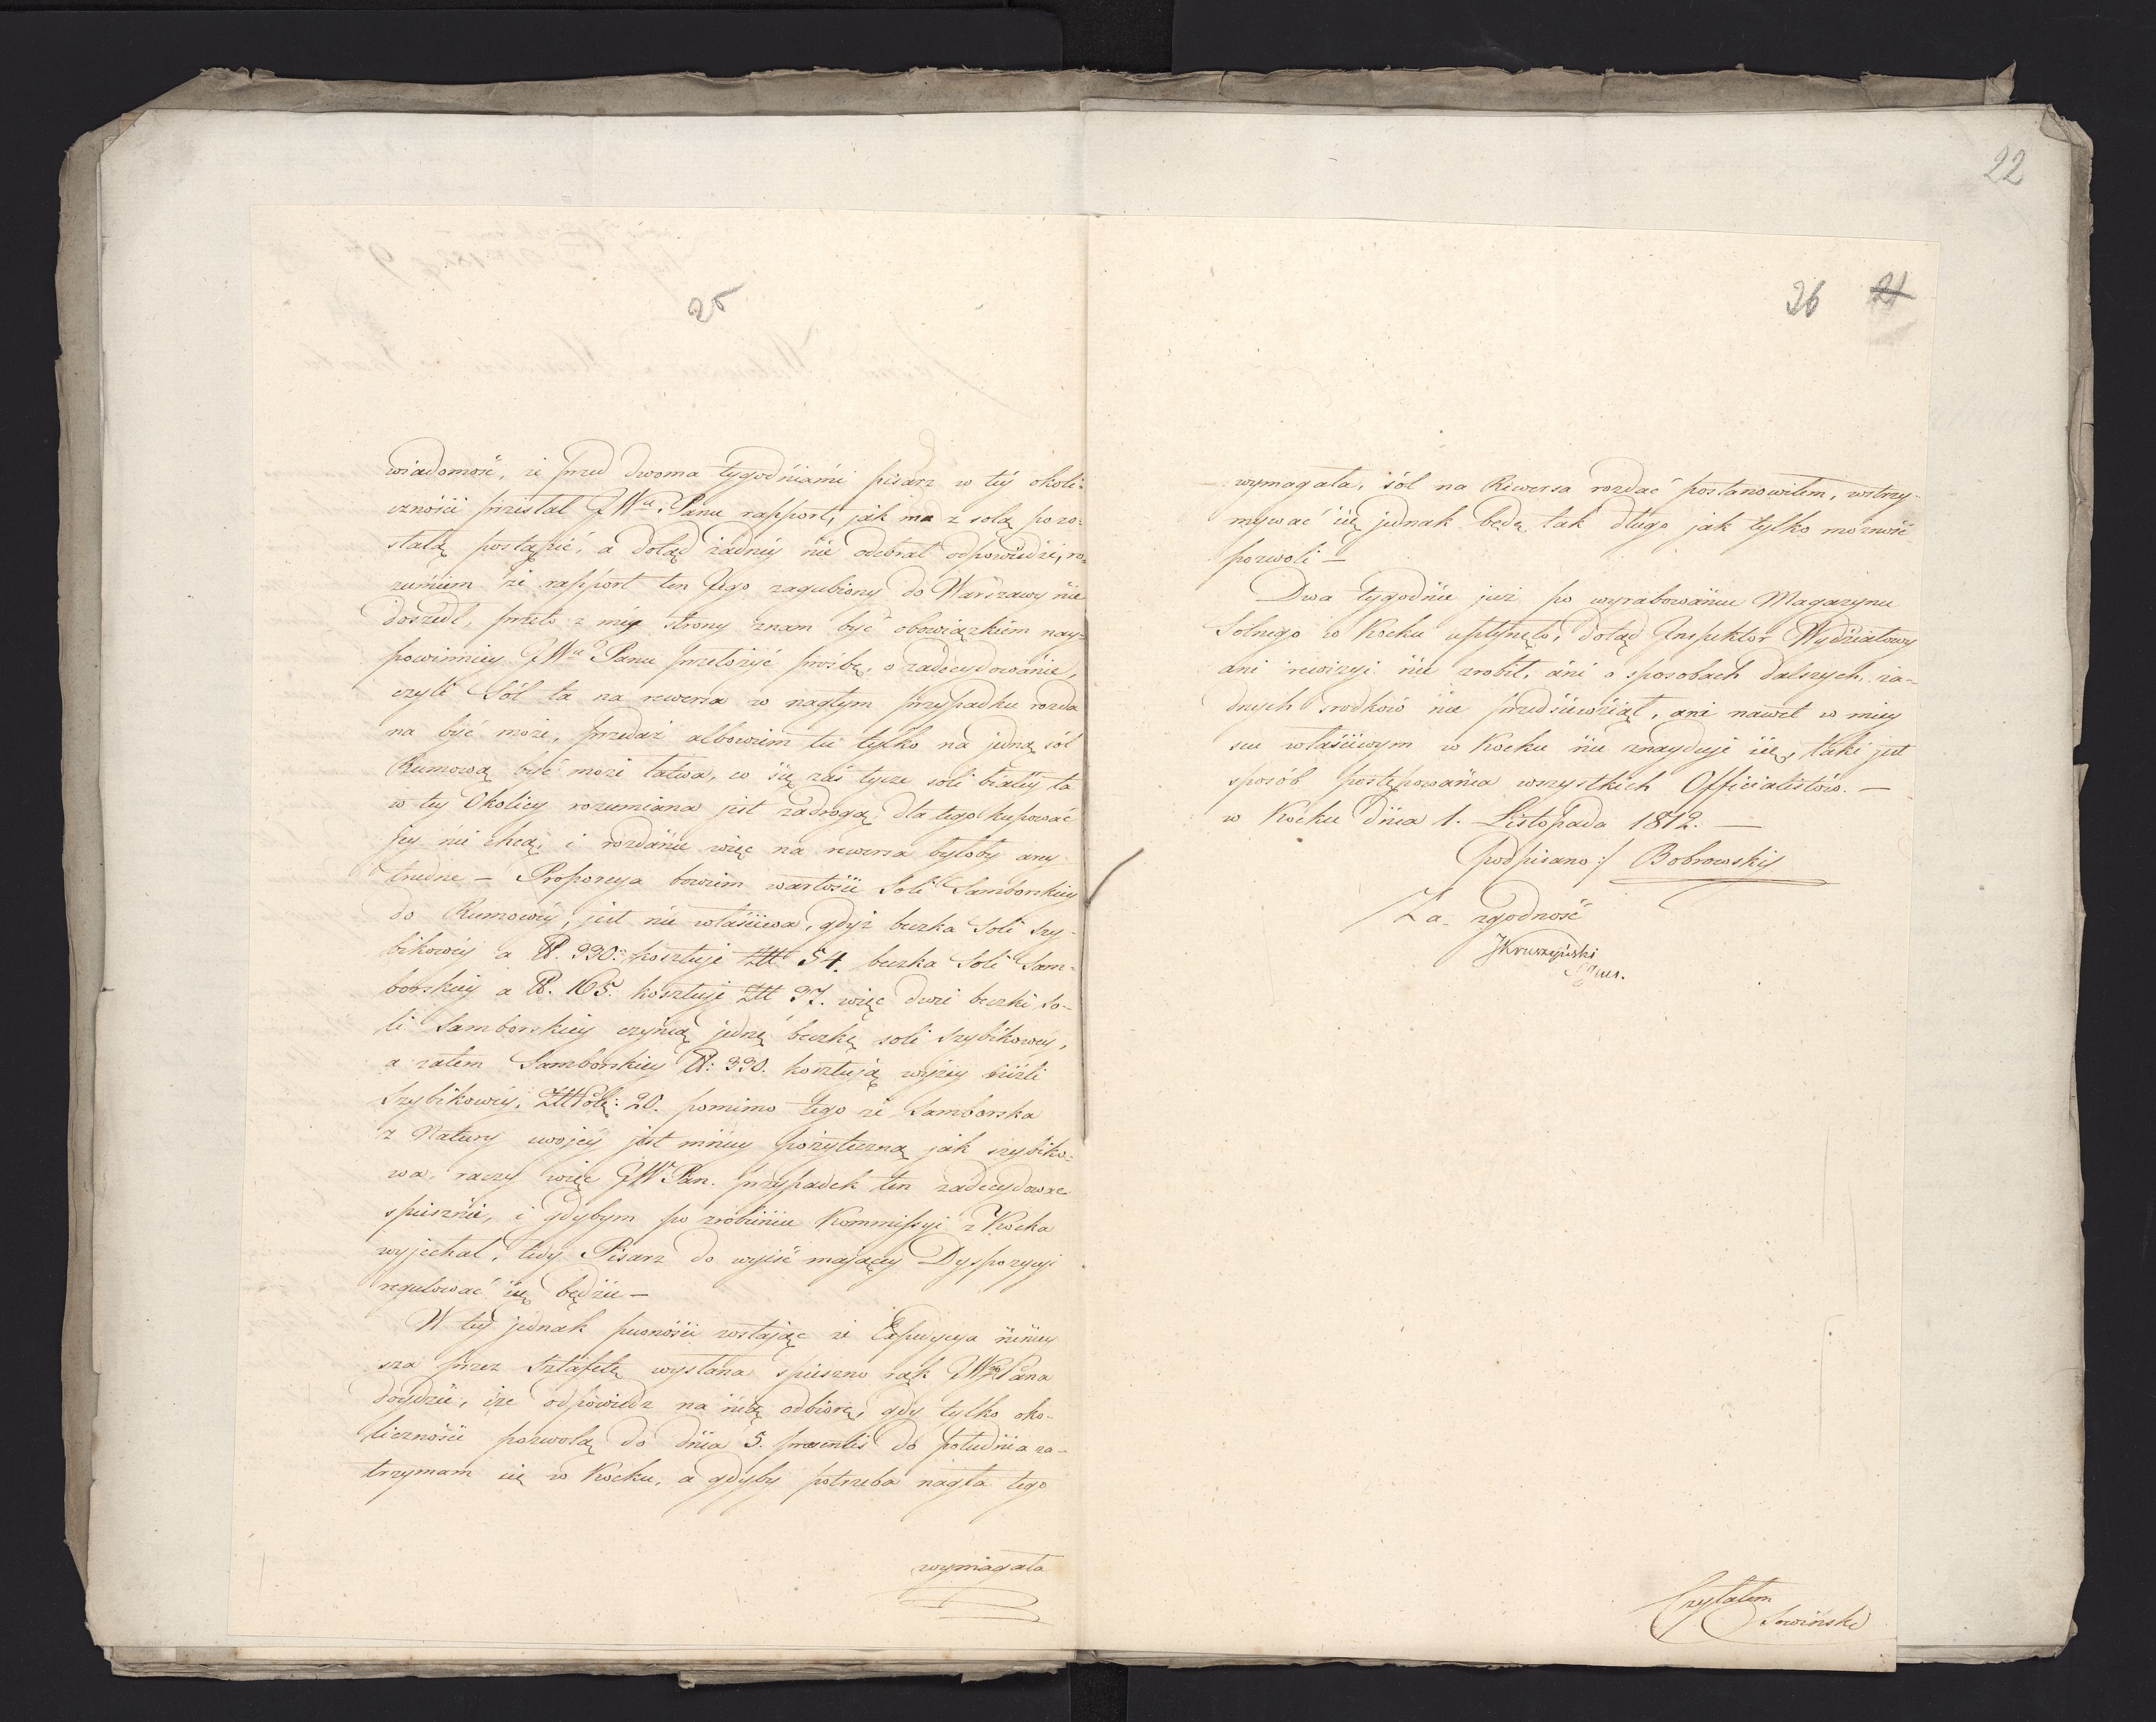 25
wiadomość, że przed dwoma tygodniami pisarz w tey okoli-
czności przesłał JWu Panu rapport, jak ma z solą pozo-
stałą postąpić, a dotąd żadney nie odebrał odpowiedzi, ro-
zumiem że rapport ten Jego zagubiony do Warszawy nie
doszedł, przeto z mey strony znam być obowiązkiem nay-
powinniey JWu Panu przełożyć prośbę, o zadecydowanie,
czyli Sól ta na rewersa w nagłym przypadku rozda
na być może, przedaż albowiem tu tylko na jedną sól
Rumową być może łatwa, co się zaś tycze soli białey ta
w tey Okolicy rozumiana jest zadrogą, dla tego kupować
jey nie chcą, i rozdanie więc na rewersa byłoby arcy
trudne — Proporcya bowiem wartości Soli Samborskiey
do Rumowey, jest nie właściwa, gdyż beczka Soli Szy-
bikowey a ℔. 330. kosztuje Złł 54. beczka Soli Sam-
borskiey a ℔. 165. kosztuje Złł 37. więc dwie beczki So-
li Samborskiey czynią jednę beczkę soli Szybikowey,
a zatem Samborskiey ℔: 330. kosztują wyżey niżli
Szybikowey, Złł Pols: 20. pomimo tego że Samborska
z Natury swojey jest mniey pożyteczną jak szybiko-
wa, raczy więc JW Pan. przypadek ten zadecydować
spiesznie, i gdybym po zrobieniu Kommissyi z Kocka
wyjechał, tedy Pisarz do wyiść maiącey Dyspozycyi
regulować się będzie —
W tey jednak pewności zostając że Expedycya niniey
sza przez Sztafetę wysłana spieszno rąk JW Pana
doydzie, iże odpowiedz na nię odbiorę, gdy tylko oko-
liczności pozwolą do dnia 5. praesentis do południa za-
trzymam się w Kocku, a gdyby potrzeba nagła tego
wymagała
22
26 21
wymagała, sól na Rewersa rozdać postanowiłem, wstrzy-
mywać się jednak będę tak długo jak tylko możność
pozwoli —
Dwa tygodnie już po wyrabowaniu Magazynu
Solnego w Kocku upłynęło, dotąd Inspektor Wydziałowy
ani rewizyi nie zrobił, ani o sposobach dalszych, ża-
dnych srodków nie przedsiewziął, ani nawet w miey
scu właściwym w Kocku nie znayduje się, taki jest
sposób postępowania wszystkich Officialistów. —
w Kocku Dnia 1. Listopada 1812. —
Podpisano :/ Bobrowski
Za zgodność
JKruszyński
Czytałem
Sowiński